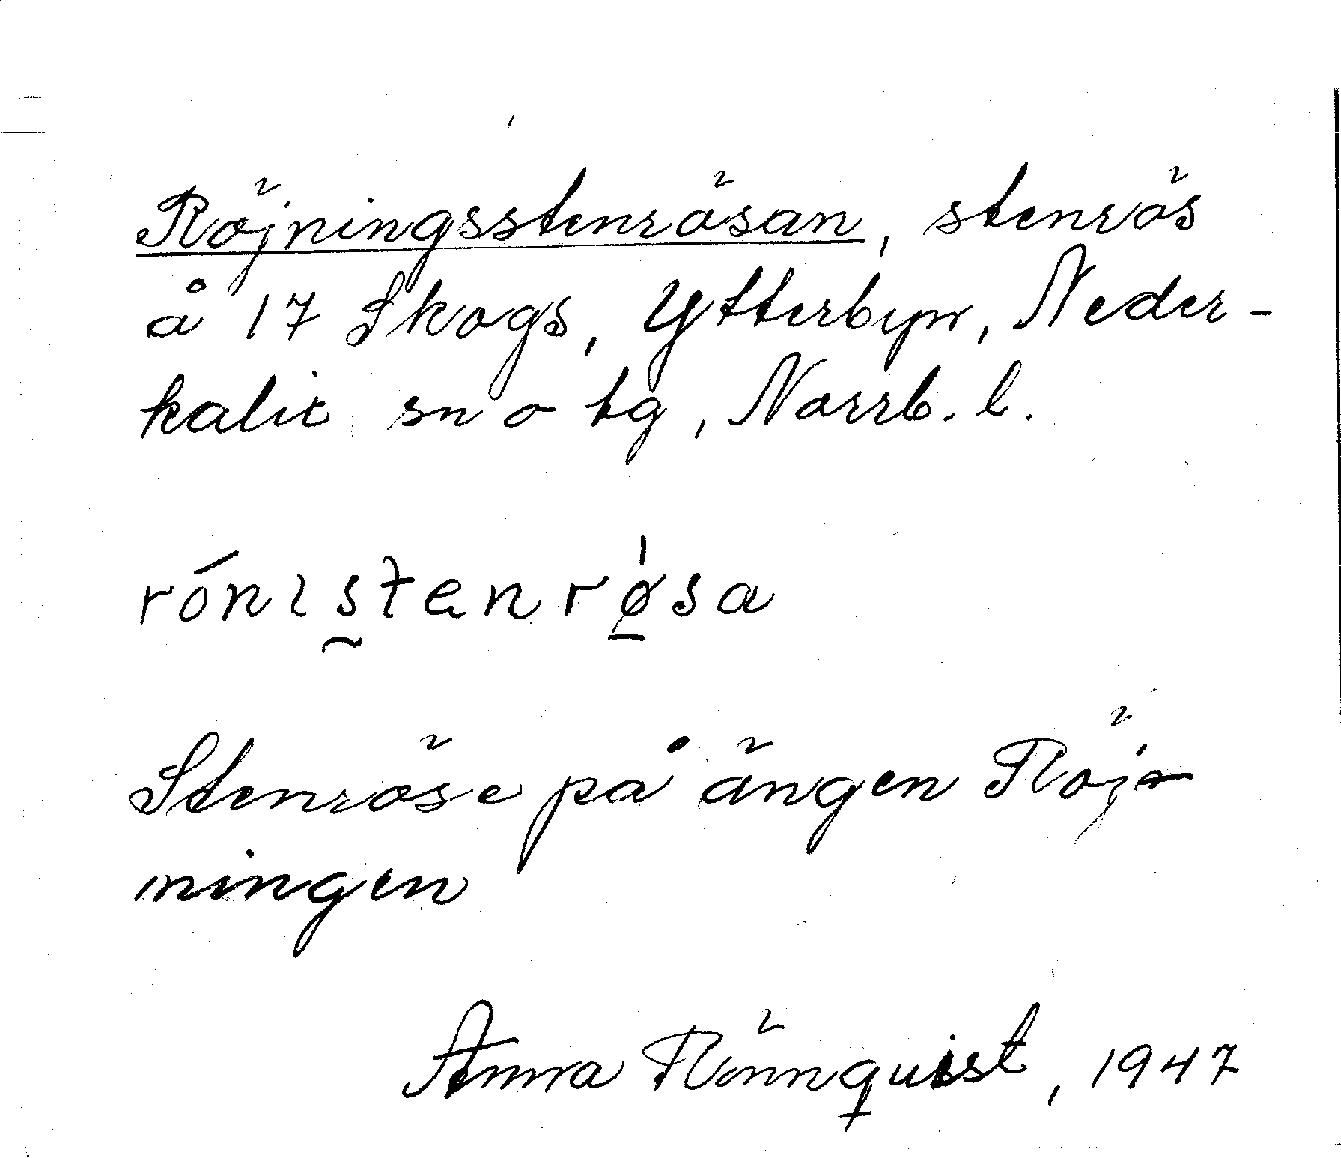 Röjningsstenrösan, stenrös
å 17 Skogs, Ytterbyn, Neder-
kalix sn o tg, Norrb. l.
rónɩstenrø̱sa
Stenröse på ängen Röj-
ningen
Anna Rönnquist, 1947